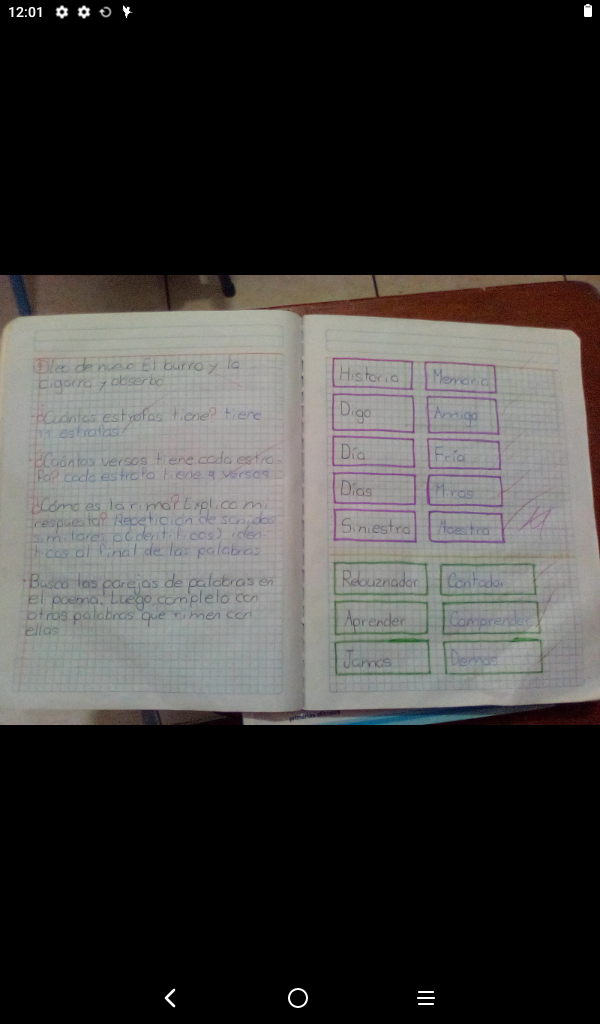 12:01
Oleo de nuevo El burro y la
cigarra y obserbo
¿Cuántas estrofas tiene? tiene
11 estrofas/
¿Cuántos versos tiene cada estro-
fa? cada estrofa tiene 4 versos
¿Cómo es la rima? Explico mi
respuesta? Repetición de sonidos
similares o identicos al final de las palabras
Busco las parejas de palabras en
el poema. Luego, completo con
otras palabras que rimen con
ellas
Historia Memoria
Digo Amigo
Día Fría
Días Mirás
Siniestra Maestra
Rebuznador Contador
Aprender Comprender
Jamas Demas